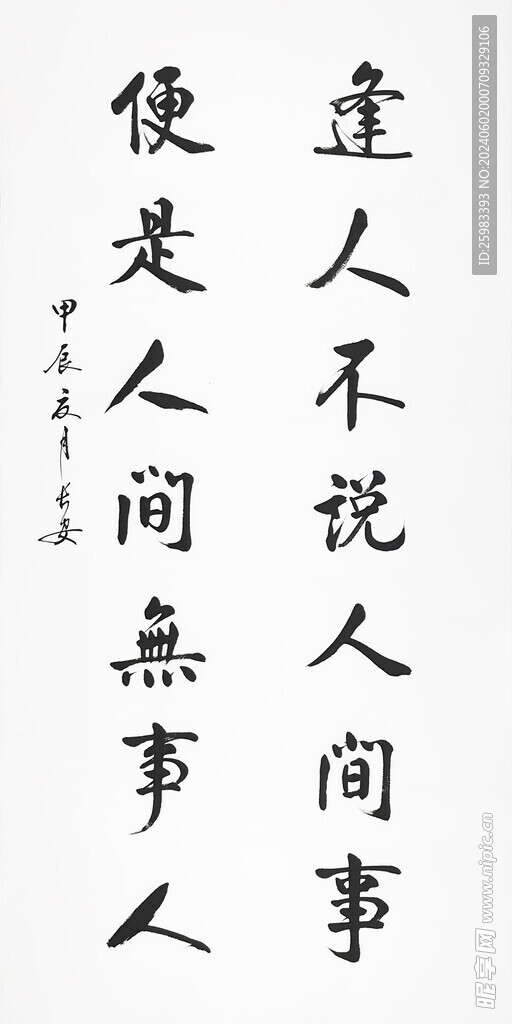 逢人不说人间事
便是人间無事人
甲辰夏月长安
ID:25983393 NO:20240602000709329106
昵享网 www.nipic.cn